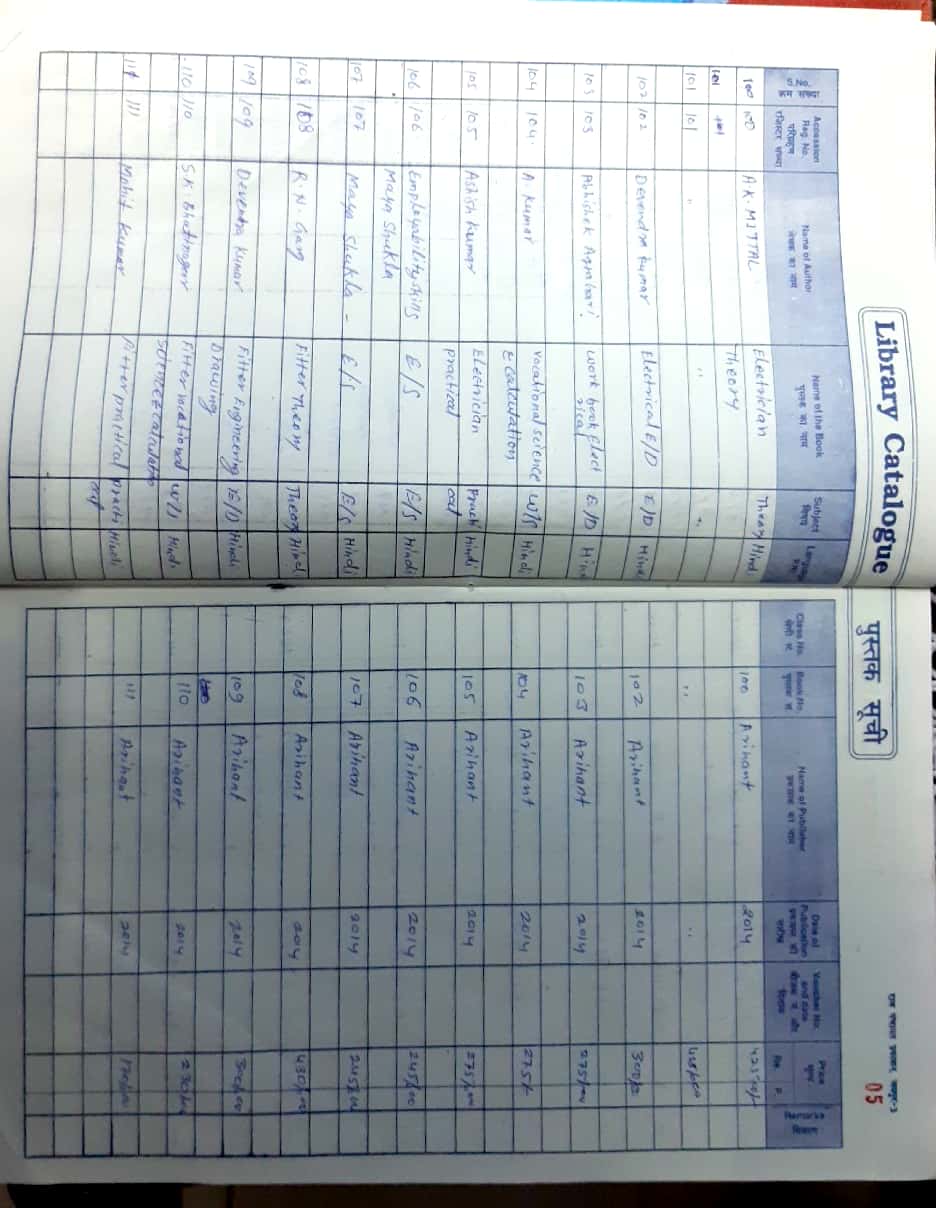 Library Catalogue
पुस्तक सूची
05
S.No. क्रम संख्या | Accession Reg. No. परिग्रहण रजिस्टर संख्या | Name of Author लेखक का नाम | Name of the Book पुस्तक का नाम | Subject विषय | Class No. श्रेणी सं. | Book No. पुस्तक सं. | Name of Publisher प्रकाशक का नाम | Date of Publication प्रकाशन की तारीख | Voucher No. and date | Price मूल्य Rs. P. | Remarks
100 100 A.K. MITTAL Electrician Theory Hindi 100 Arihant 2014
101 Theory
101 101 " " " " "
102 102 Devendra Kumar Electrical E/D E/D Hindi 102 Arihant 2014
103 103 Abhishek work book Elect E/D Hindi 103 Arihant 2014
rical
104 104 A. Kumar vocational science W/S Hindi 104 Arihant 2014 275/-
& calculation
105 105 Ashish Kumar Electrician Practi Hindi 105 Arihant 2014
practical cal
106 106 Employability skills E/S E/S Hindi 106 Arihant 2014 245/00
Maya Shukla
107 107 Maya Shukla - E/S E/S Hindi 107 Arihant 2014
108 108 R.N. Garg Fitter Theory Theory Hindi 108 Arihant 2014 430/00
109 109 Devendra Kumar Fitter Engineering E/D Hindi 109 Arihant 2014 300/00
Drawing
110 110 S.K. Bhatnagar Fitter vocational W/S Hindi 110 Arihant 2014
Science & calculation
111 111 Mohit Kumar Fitter practical practi Hindi 111 Arihant 2014
cal